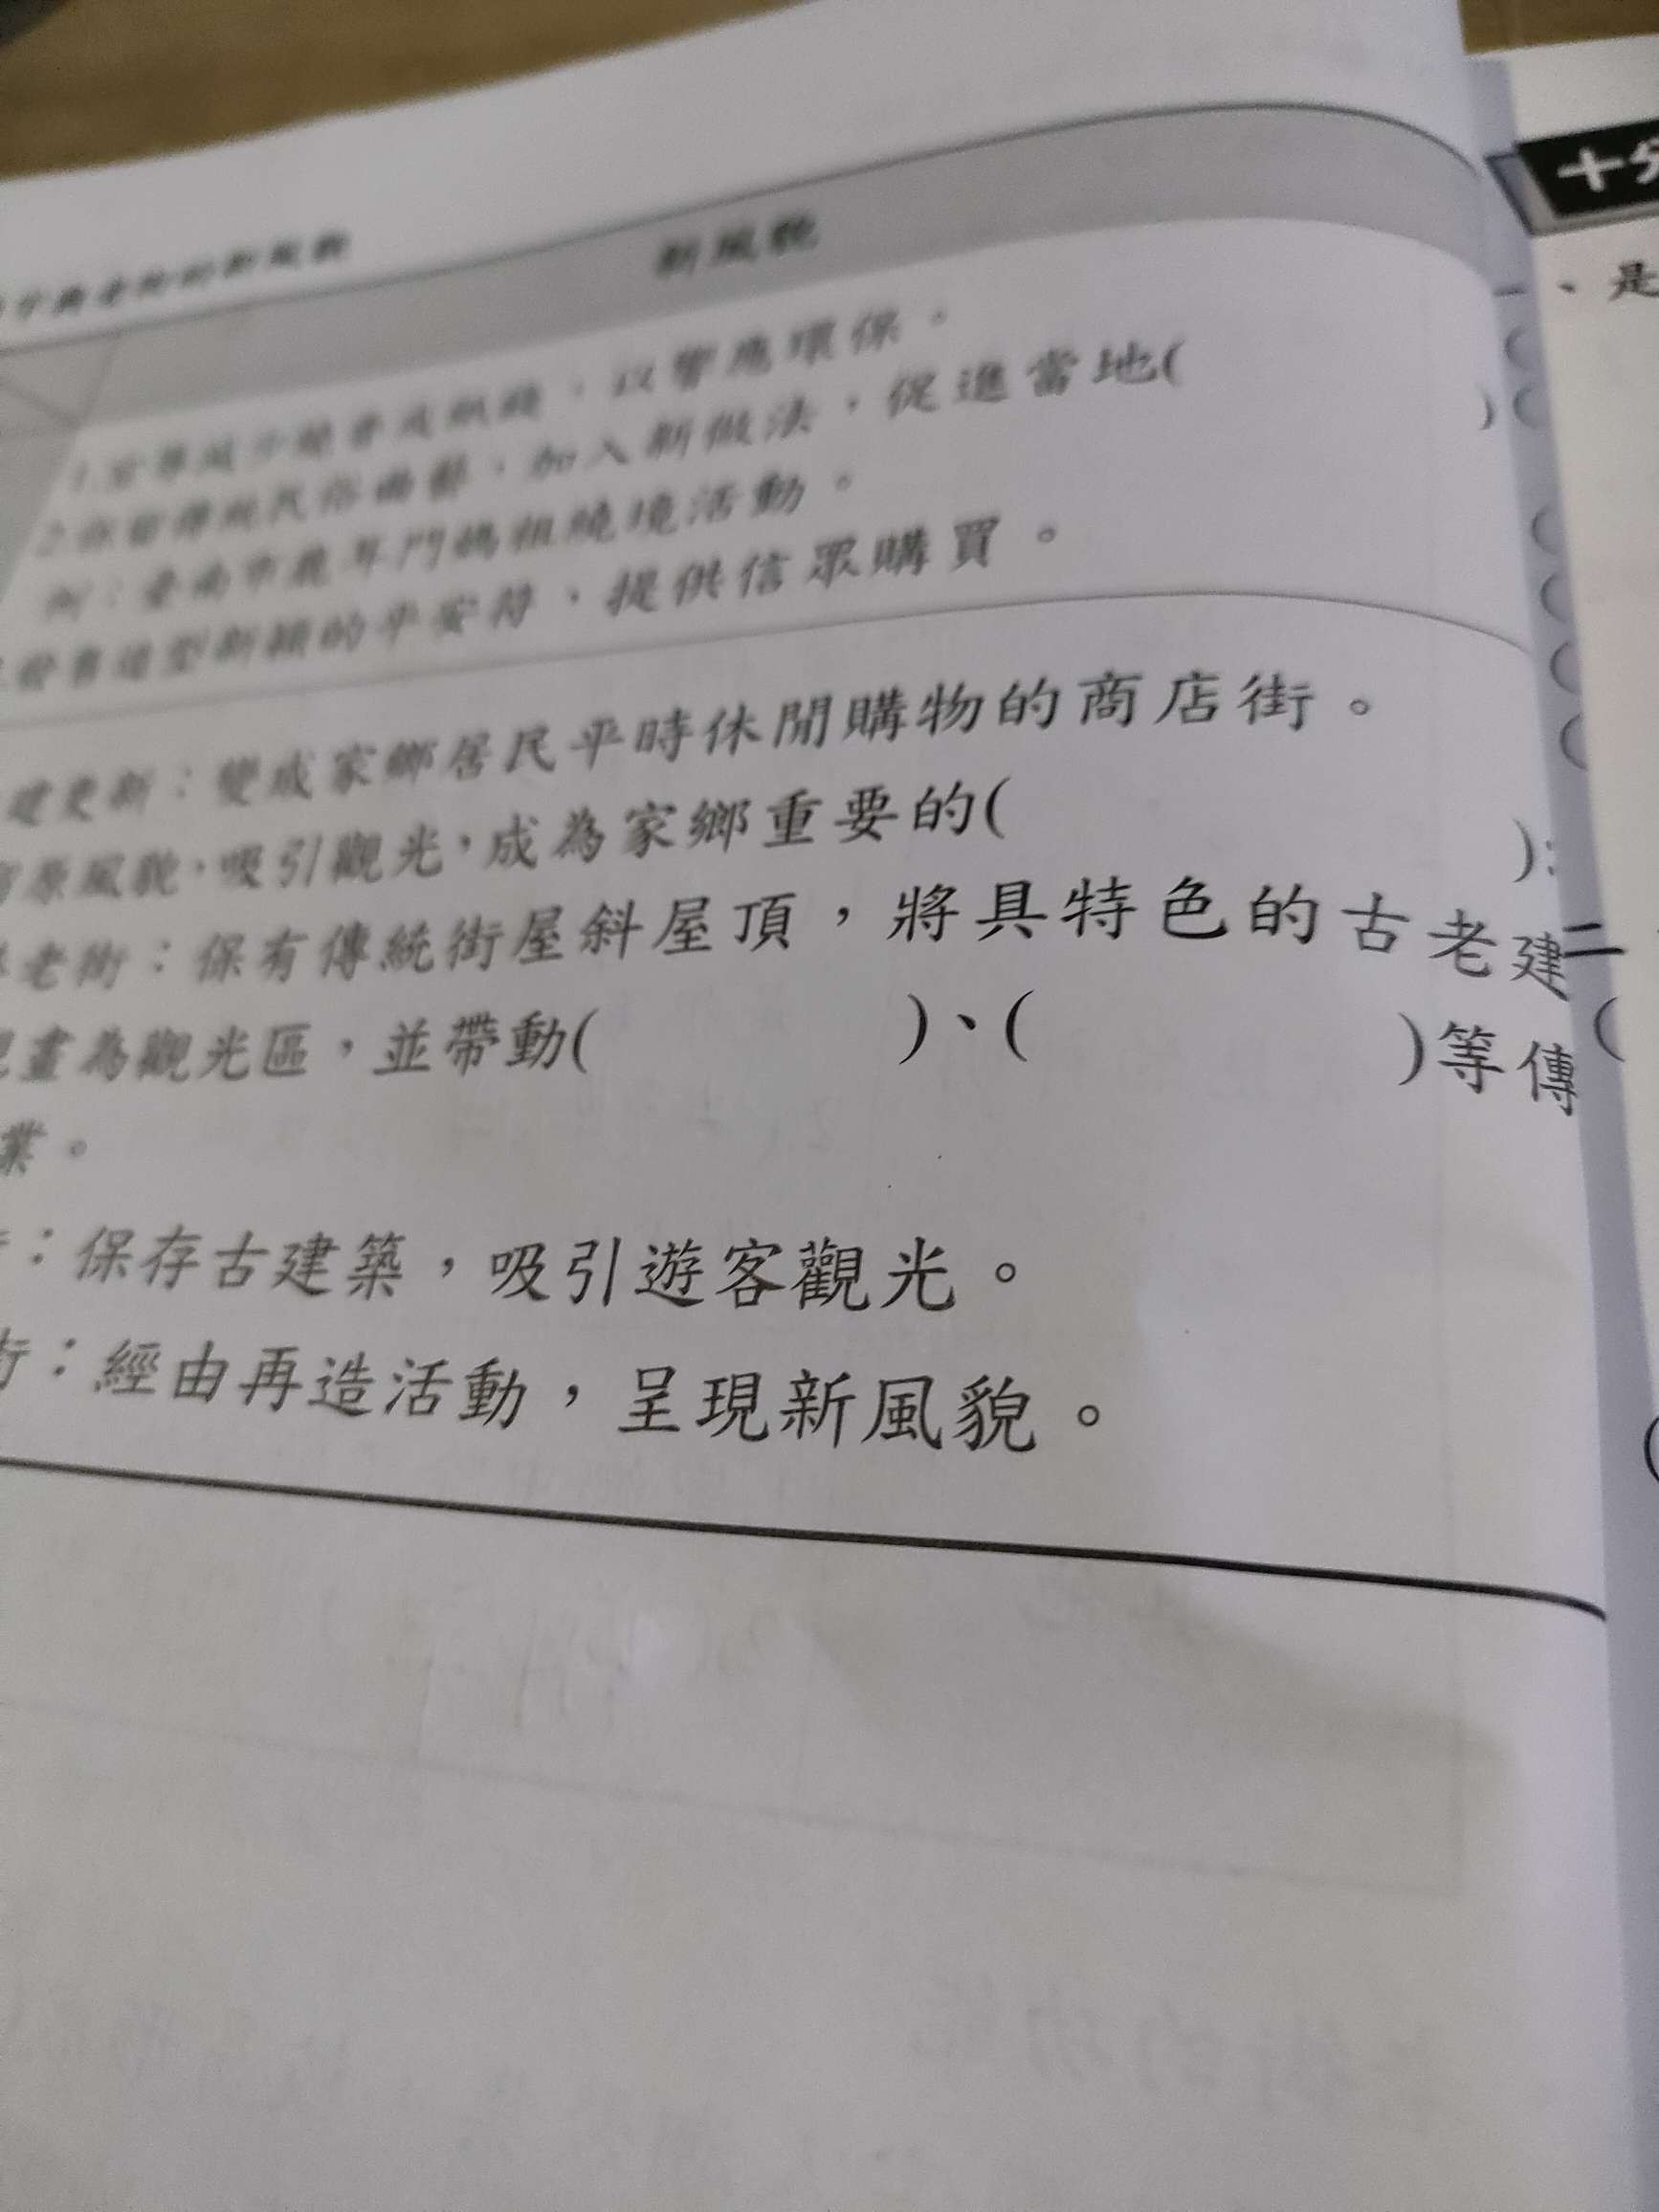 新風貌
以響應環保。
加入新做法，促進當地(　　)
例：臺南市鹿耳門媽祖繞境活動。
造型新穎的平安符，提供信眾購買。
建更新：變成家鄉居民平時休閒購物的商店街。
原風貌，吸引觀光，成為家鄉重要的(　　)：
老街：保有傳統街屋斜屋頂，將具特色的古老建
畫為觀光區，並帶動(　　)、(　　)等傳
業。
：保存古建築，吸引遊客觀光。
街：經由再造活動，呈現新風貌。
十分
一、是
二